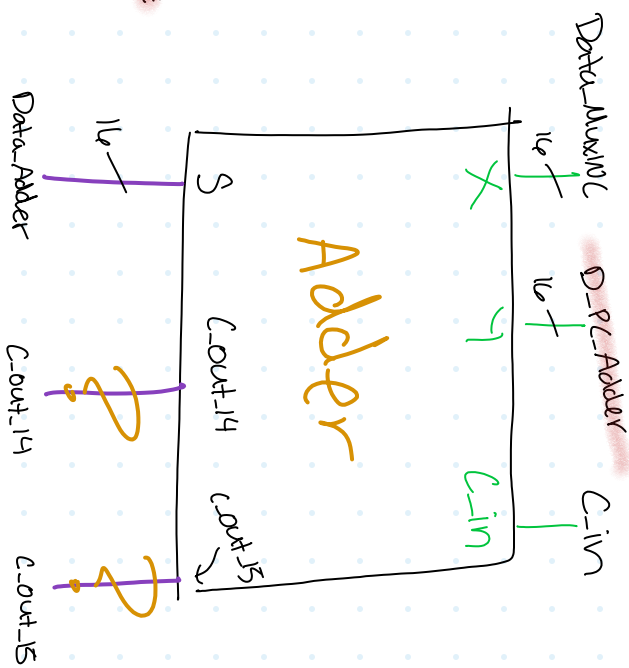 Data_MuxINC
D_PC_Adder
C_in
16
16
X
Y
C_in
Adder
S
C_out_14
C_out_15
16
Data_Adder
C_out_14
C_out_15